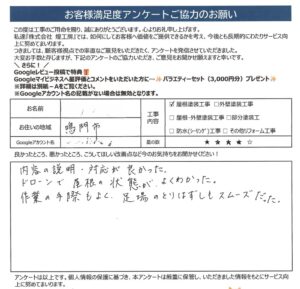 お客様満足度アンケートご協力のお願い
＼ さらに！ ／
Googleレビュー投稿で特典🎁
Googleマイビジネスへ星評価とコメントをいただいた方に… バラエティーセット（3,000円分）プレゼント
※詳細は別紙-Aをご覧ください。
※Googleアカウント名の記載がない場合は無効となります。
お名前
工事内容
☑ 屋根塗装工事 □ 外壁塗装工事
お住いの地域
鳴門市
□ 屋根・外壁塗装工事 □ 部分塗装
□ 防水(シーリング)工事 □ その他リフォーム工事
Googleアカウント名
星の数
★ ★ ★ ★ ☆
良かったところ、悪かったところ、こうしてほしい改善点などの今のお気持ちをお聞かせください！
内容の説明・対応が良かった。
ドローンで屋根の状態が、よくわかった。
作業の手際もよく、足場のとりはずしもスムーズだった。
アンケートは以上です。個人情報の保護に基づき、本アンケートは厳重に保管し、いただきました情報をもとにサービス向上に努めてまいります。